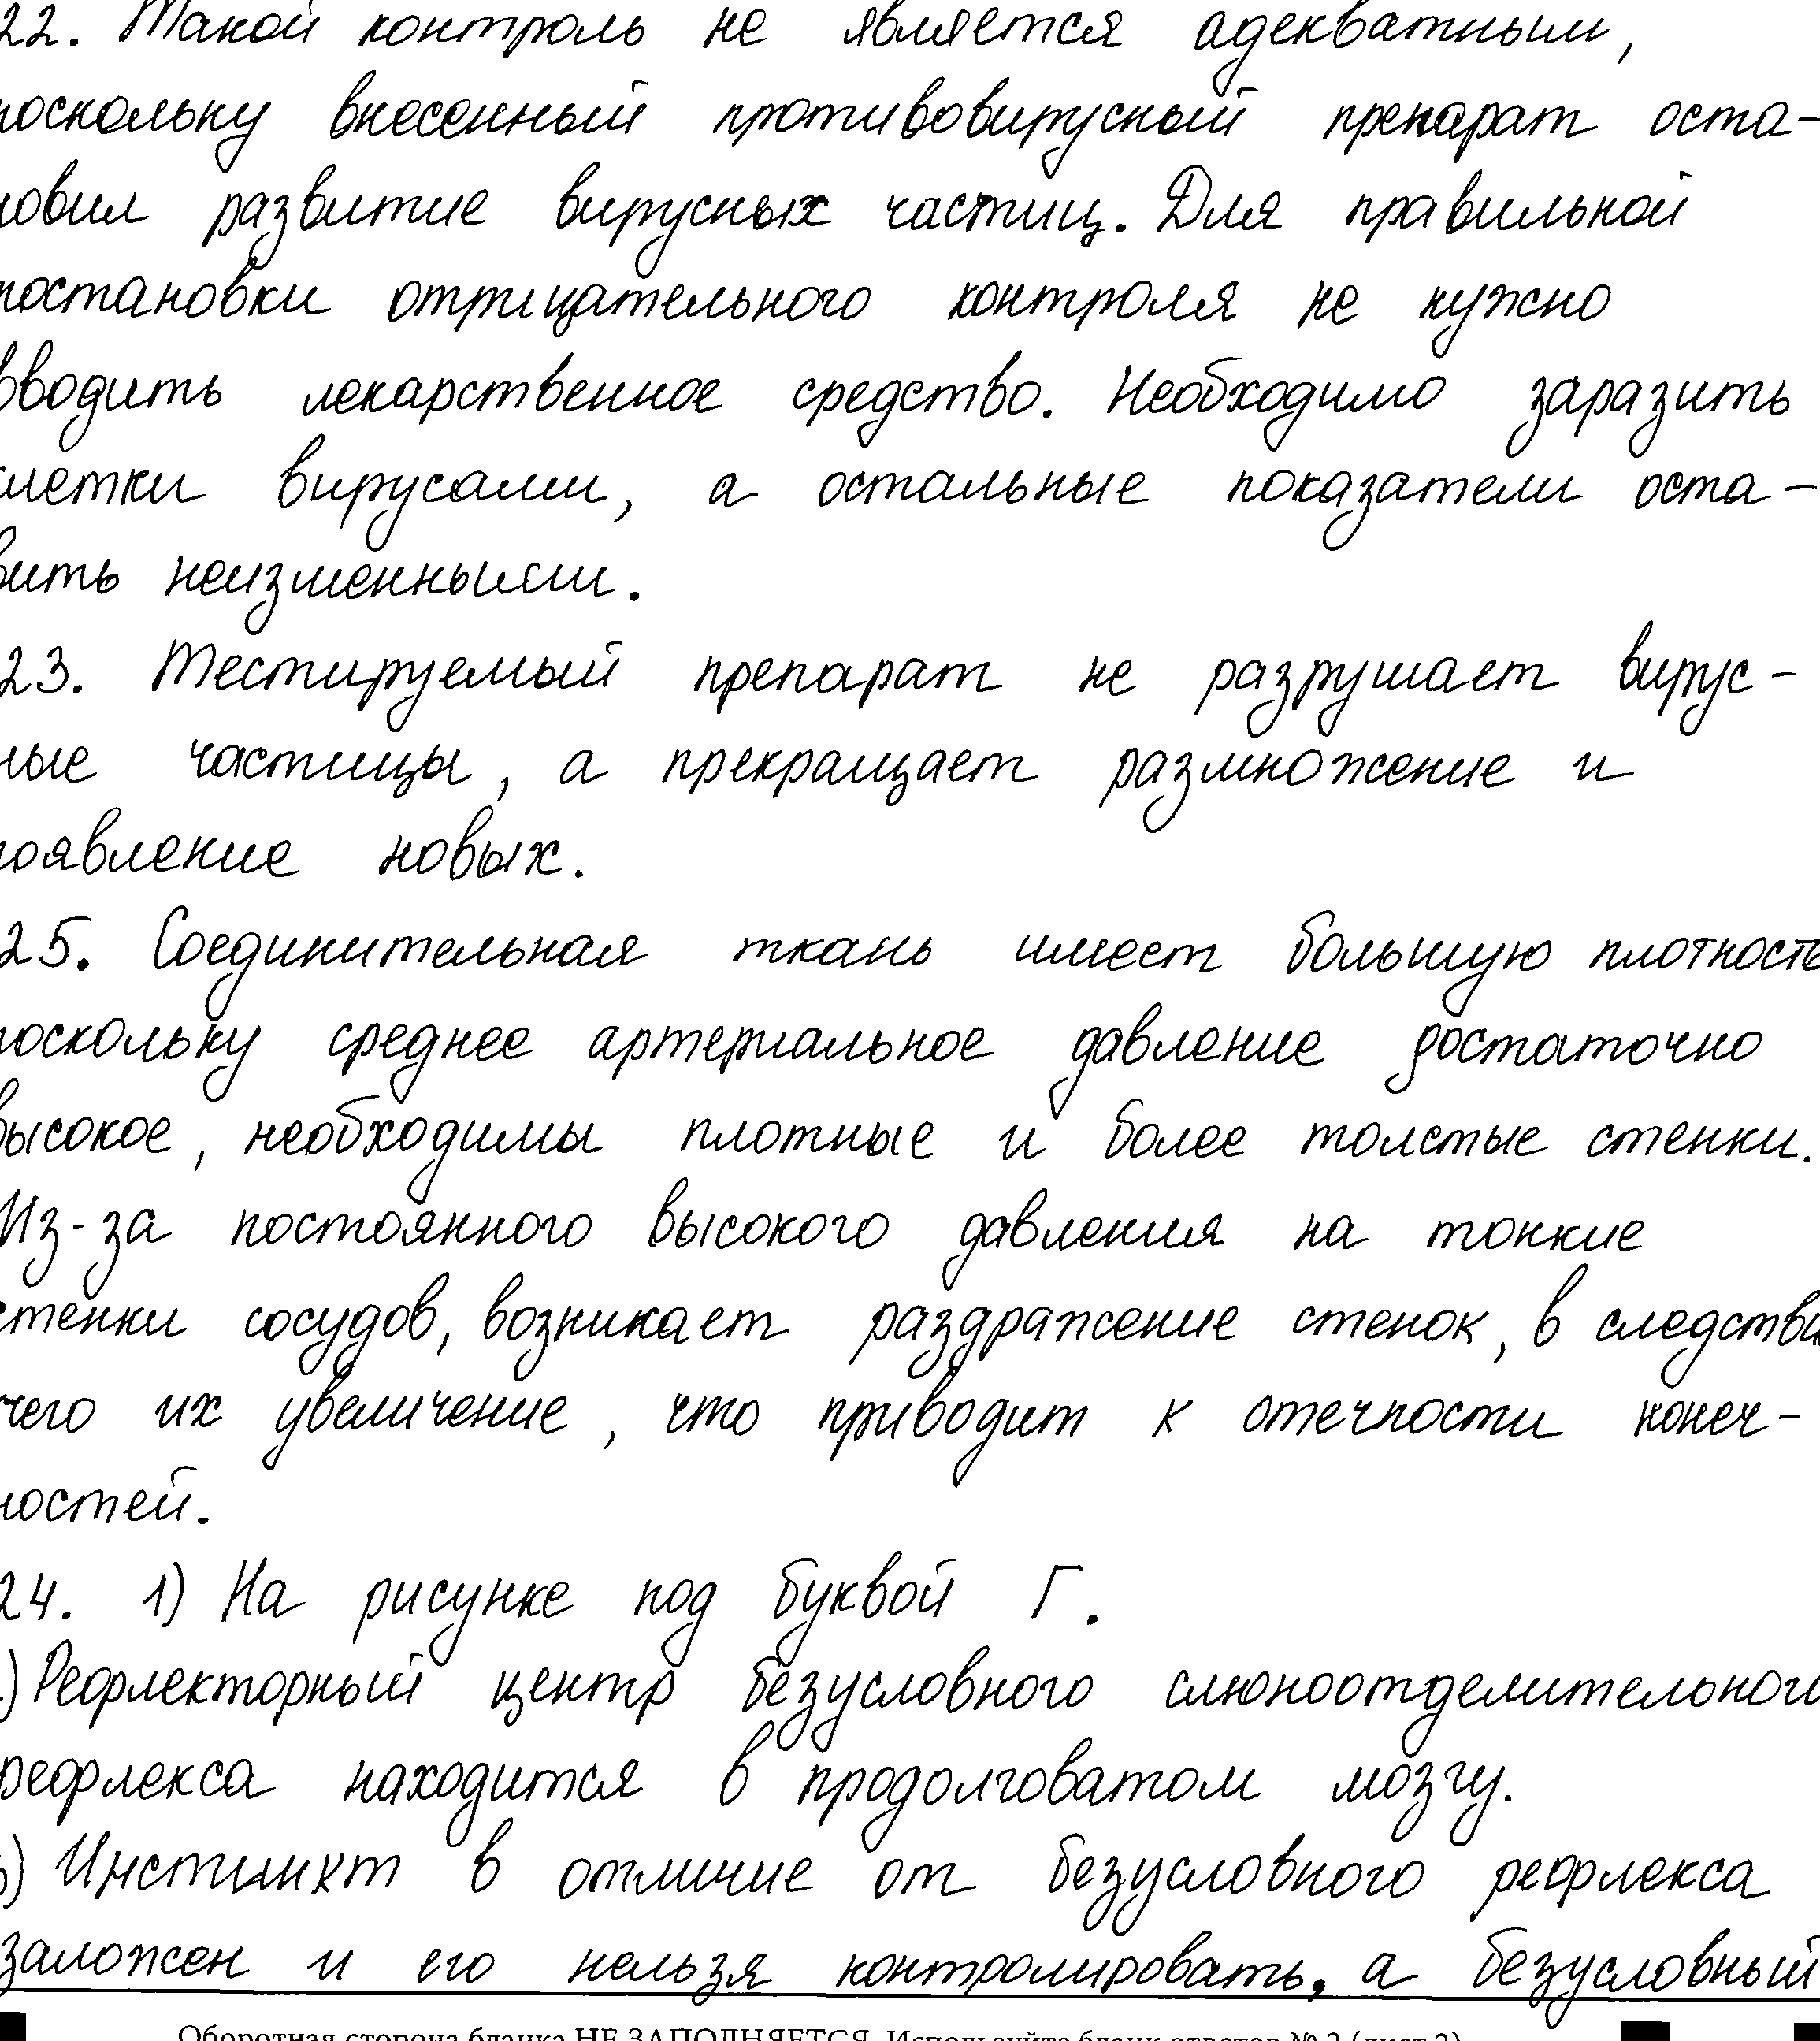 22. Такой контроль не является адекватным,
поскольку внесенный противовирусный препарат оста-
новил развитие вирусных частиц. Для правильной
постановки отрицательного контроля не нужно
вводить лекарственное средство. Необходимо заразить
клетки вирусами, а остальные показатели оста-
вить неизменными.
23. Тестируемый препарат не разрушает вирус-
ные частицы, а прекращает размножение и
появление новых.
25. Соединительная ткань имеет большую плотность
поскольку среднее артериальное давление достаточно
высокое, необходимы плотные и более толстые стенки.
Из-за постоянного высокого давления на тонкие
стенки сосудов, возникает раздражение стенок, в следстви
чего их увеличение, что приводит к отечности конеч-
ностей.
24. 1) На рисунке под буквой Г.
) Рефлекторный центр безусловного слюноотделительного
рефлекса находится в продолговатом мозгу.
) Инстинкт в отличие от безусловного рефлекса
заложен и его нельзя контролировать, а безусловный
Оборотная сторона бланка НЕ ЗАПОЛНЯЕТСЯ. Используйте бланк ответов № 2 (лист 2)